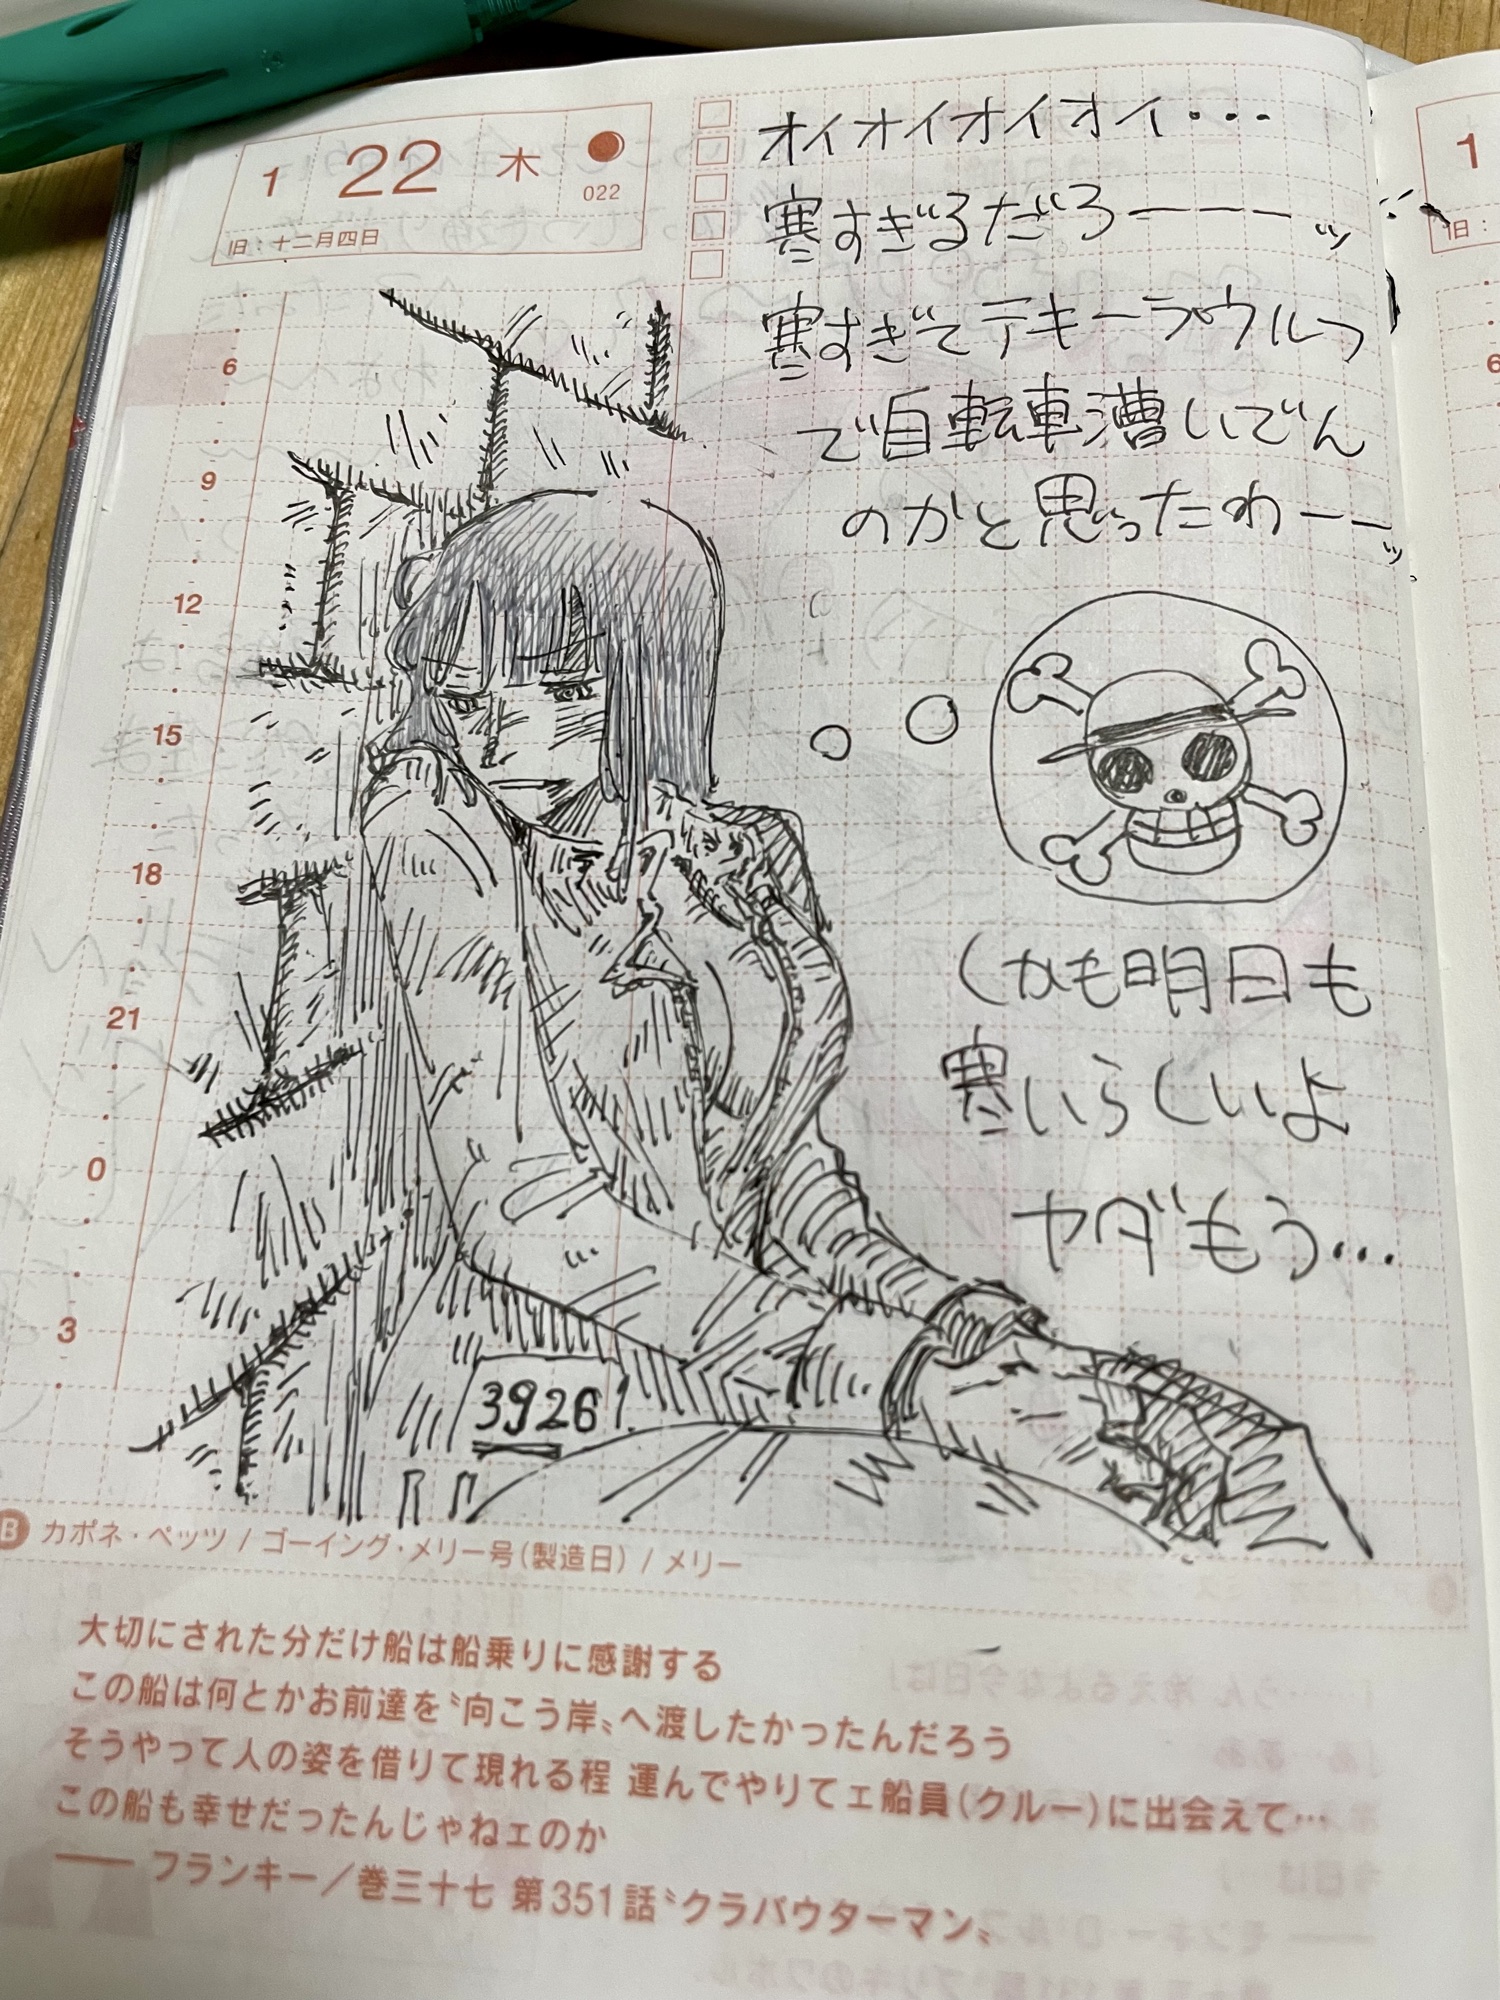 1 22 木
022
旧：十二月四日
オイオイオイオイ・・・
寒すぎるだろーーーッ
寒すぎてテキーラウルフ
で自転車漕いでん
のかと思ったわーーッ
6
9
12
15
18
21
0
3
しかも明日も
寒いらしいよ
ヤダもう・・・
39261
B カポネ・ペッツ / ゴーイング・メリー号（製造日） / メリー
大切にされた分だけ船は船乗りに感謝する
この船は何とかお前達を〝向こう岸〟へ渡したかったんだろう
そうやって人の姿を借りて現れる程 運んでやりてェ船員（クルー）に出会えて…
この船も幸せだったんじゃねェのか
―― フランキー／巻三十七 第351話〝クラバウターマン〟
1
旧：
6